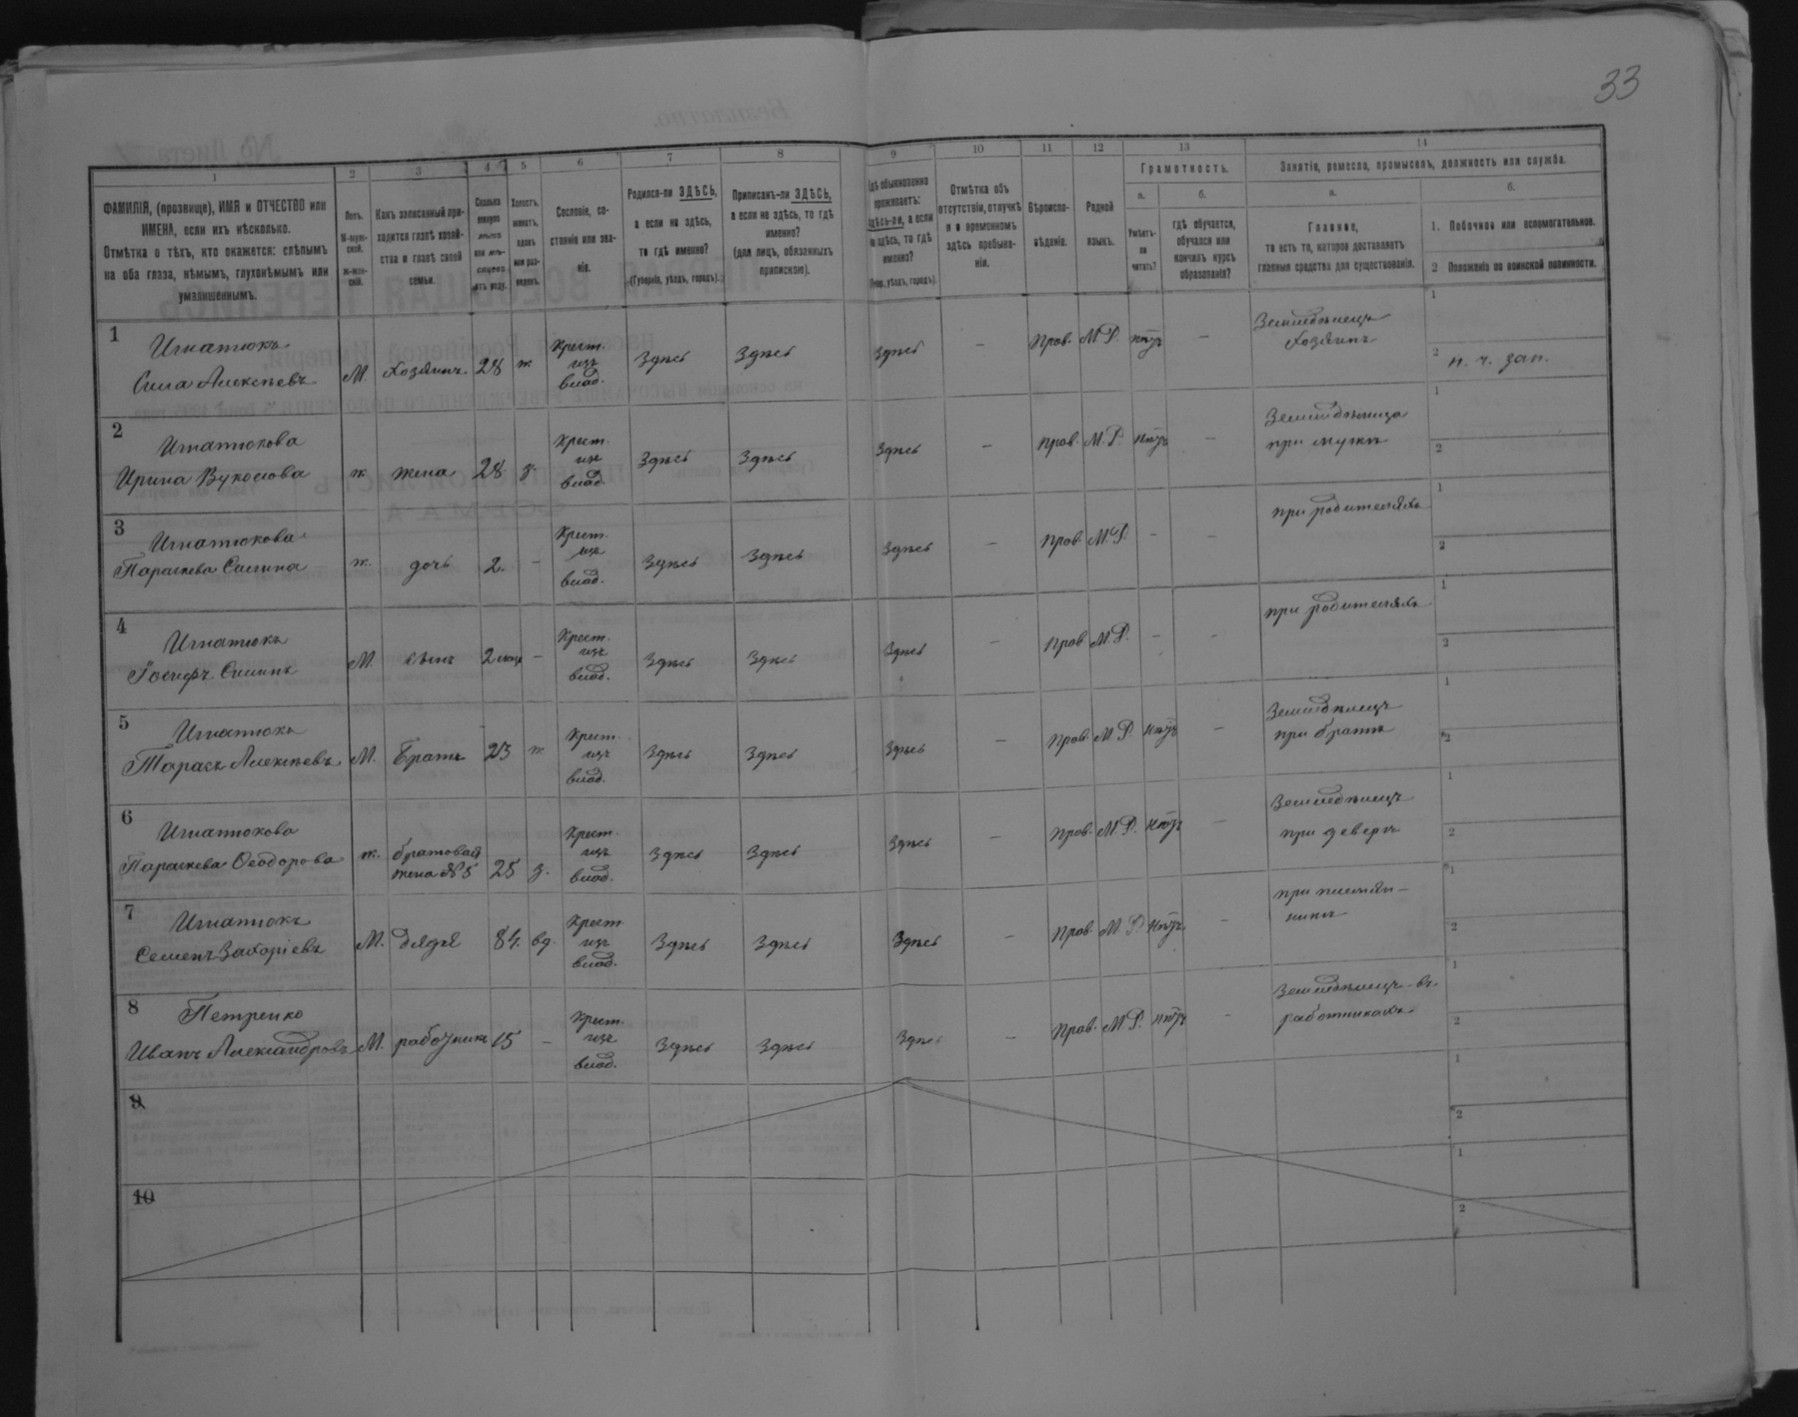 33
1
2
3
4
5
6
7
8
9
10
11
12
13
14
ФАМИЛІЯ, (прозвище), ИМЯ и ОТЧЕСТВО или
ИМЕНА, если ихъ нѣсколько.
Отмѣтка о тѣхъ, кто окажется: слѣпымъ
на оба глаза, нѣмымъ, глухонѣмымъ или
умалишеннымъ.
Полъ.
М-муж-
ской.
ж-жен-
скій.
Какъ записанный при-
ходится главѣ хозяй-
ства и главѣ своей
семьи.
Сколько
минуло
лѣтъ
или мѣ-
сяцевъ
отъ роду.
Холостъ,
женатъ,
вдовъ
или раз-
веденъ.
Сословіе, со-
стояніе или зва-
ніе.
Родился-ли ЗДѢСЬ,
а если не здѣсь,
то гдѣ именно?
(Губернія, уѣздъ, городъ).
Приписанъ-ли ЗДѢСЬ,
а если не здѣсь, то гдѣ
именно?
(для лицъ, обязанныхъ
припискою).
Гдѣ обыкновенно
проживаетъ:
здѣсь-ли, а если
не здѣсь, то гдѣ
именно?
(Губер., уѣздъ, городъ).
Отмѣтка объ
отсутствіи, отлучкѣ
и о временномъ
здѣсь пребыва-
ніи.
Вѣроиспо-
вѣданіе.
Родной
языкъ.
Грамотность.
а.
б.
Умѣетъ-
ли
читать?
гдѣ обучается,
обучался или
кончилъ курсъ
образованія?
Занятіе, ремесло, промыселъ, должность или служба.
а.
б.
Главное,
то есть то, которое доставляетъ
главныя средства для существованія.
1. Побочное или вспомогательное.
2 Положеніе по воинской повинности.
1
Игнатюкъ
Сила Алексѣевъ
М.
хозяинъ
28
ж
Крест.
изъ
влад.
Здѣсь
Здѣсь
Здѣсь
-
Прав.
М.Р.
нѣтъ
-
Земледѣлецъ
Хозяинъ
1
2
н. ч. зап.
2
Игнатюкова
Ирина Вуколова
ж.
жена
28
з.
Крест.
изъ
влад.
Здѣсь
Здѣсь
Здѣсь
-
Прав.
М.Р.
нѣтъ
-
Земледѣлица
при мужѣ
1
2
3
Игнатюкова
Параскева Силина
ж.
дочь
2.
-
Крест.
изъ
влад.
Здѣсь
Здѣсь
Здѣсь
-
Прав.
М.Р.
-
-
при родителяхъ
1
2
4
Игнатюкъ
Іосифъ Силинъ
М.
сынъ
2 мѣсц
-
Крест.
изъ
влад.
Здѣсь
Здѣсь
Здѣсь
-
Прав
М.Р.
-
-
при родителяхъ
1
2
5
Игнатюкъ
Тарасъ Алексѣевъ
М.
Братъ
23
ж
Крест.
изъ
влад.
Здѣсь
Здѣсь
Здѣсь
-
Прав.
М.Р.
нѣтъ
-
Земледѣлецъ
при братѣ
1
2
6
Игнатюкова
Параскева Ѳеодорова
ж.
братовая
жена №5
25
з.
Крест.
изъ
влад.
Здѣсь
Здѣсь
Здѣсь
-
Прав.
М.Р.
нѣтъ
-
Земледѣлецъ
при деверѣ
1
2
7
Игнатюкъ
Семенъ Захаріевъ
М.
дядя
84.
вд.
Крест
изъ
влад.
Здѣсь
Здѣсь
Здѣсь
-
Прав.
М.Р.
нѣтъ
-
при племян-
никѣ
1
2
8
Петренко
Иванъ Александровъ
М.
работникъ
15
-
Крест.
изъ
влад.
Здѣсь
Здѣсь
Здѣсь
-
Прав.
М.Р.
нѣтъ
-
Земледѣлецъ въ
работникахъ
1
2
9
1
2
10
1
2